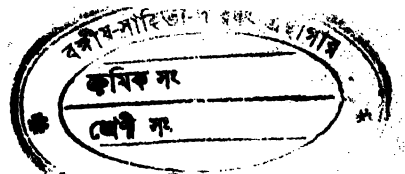 বঙ্গীয়-সাহিত্য-পরিষৎ গ্রন্থাগার
ক্রমিক সং
শ্রেণী সং